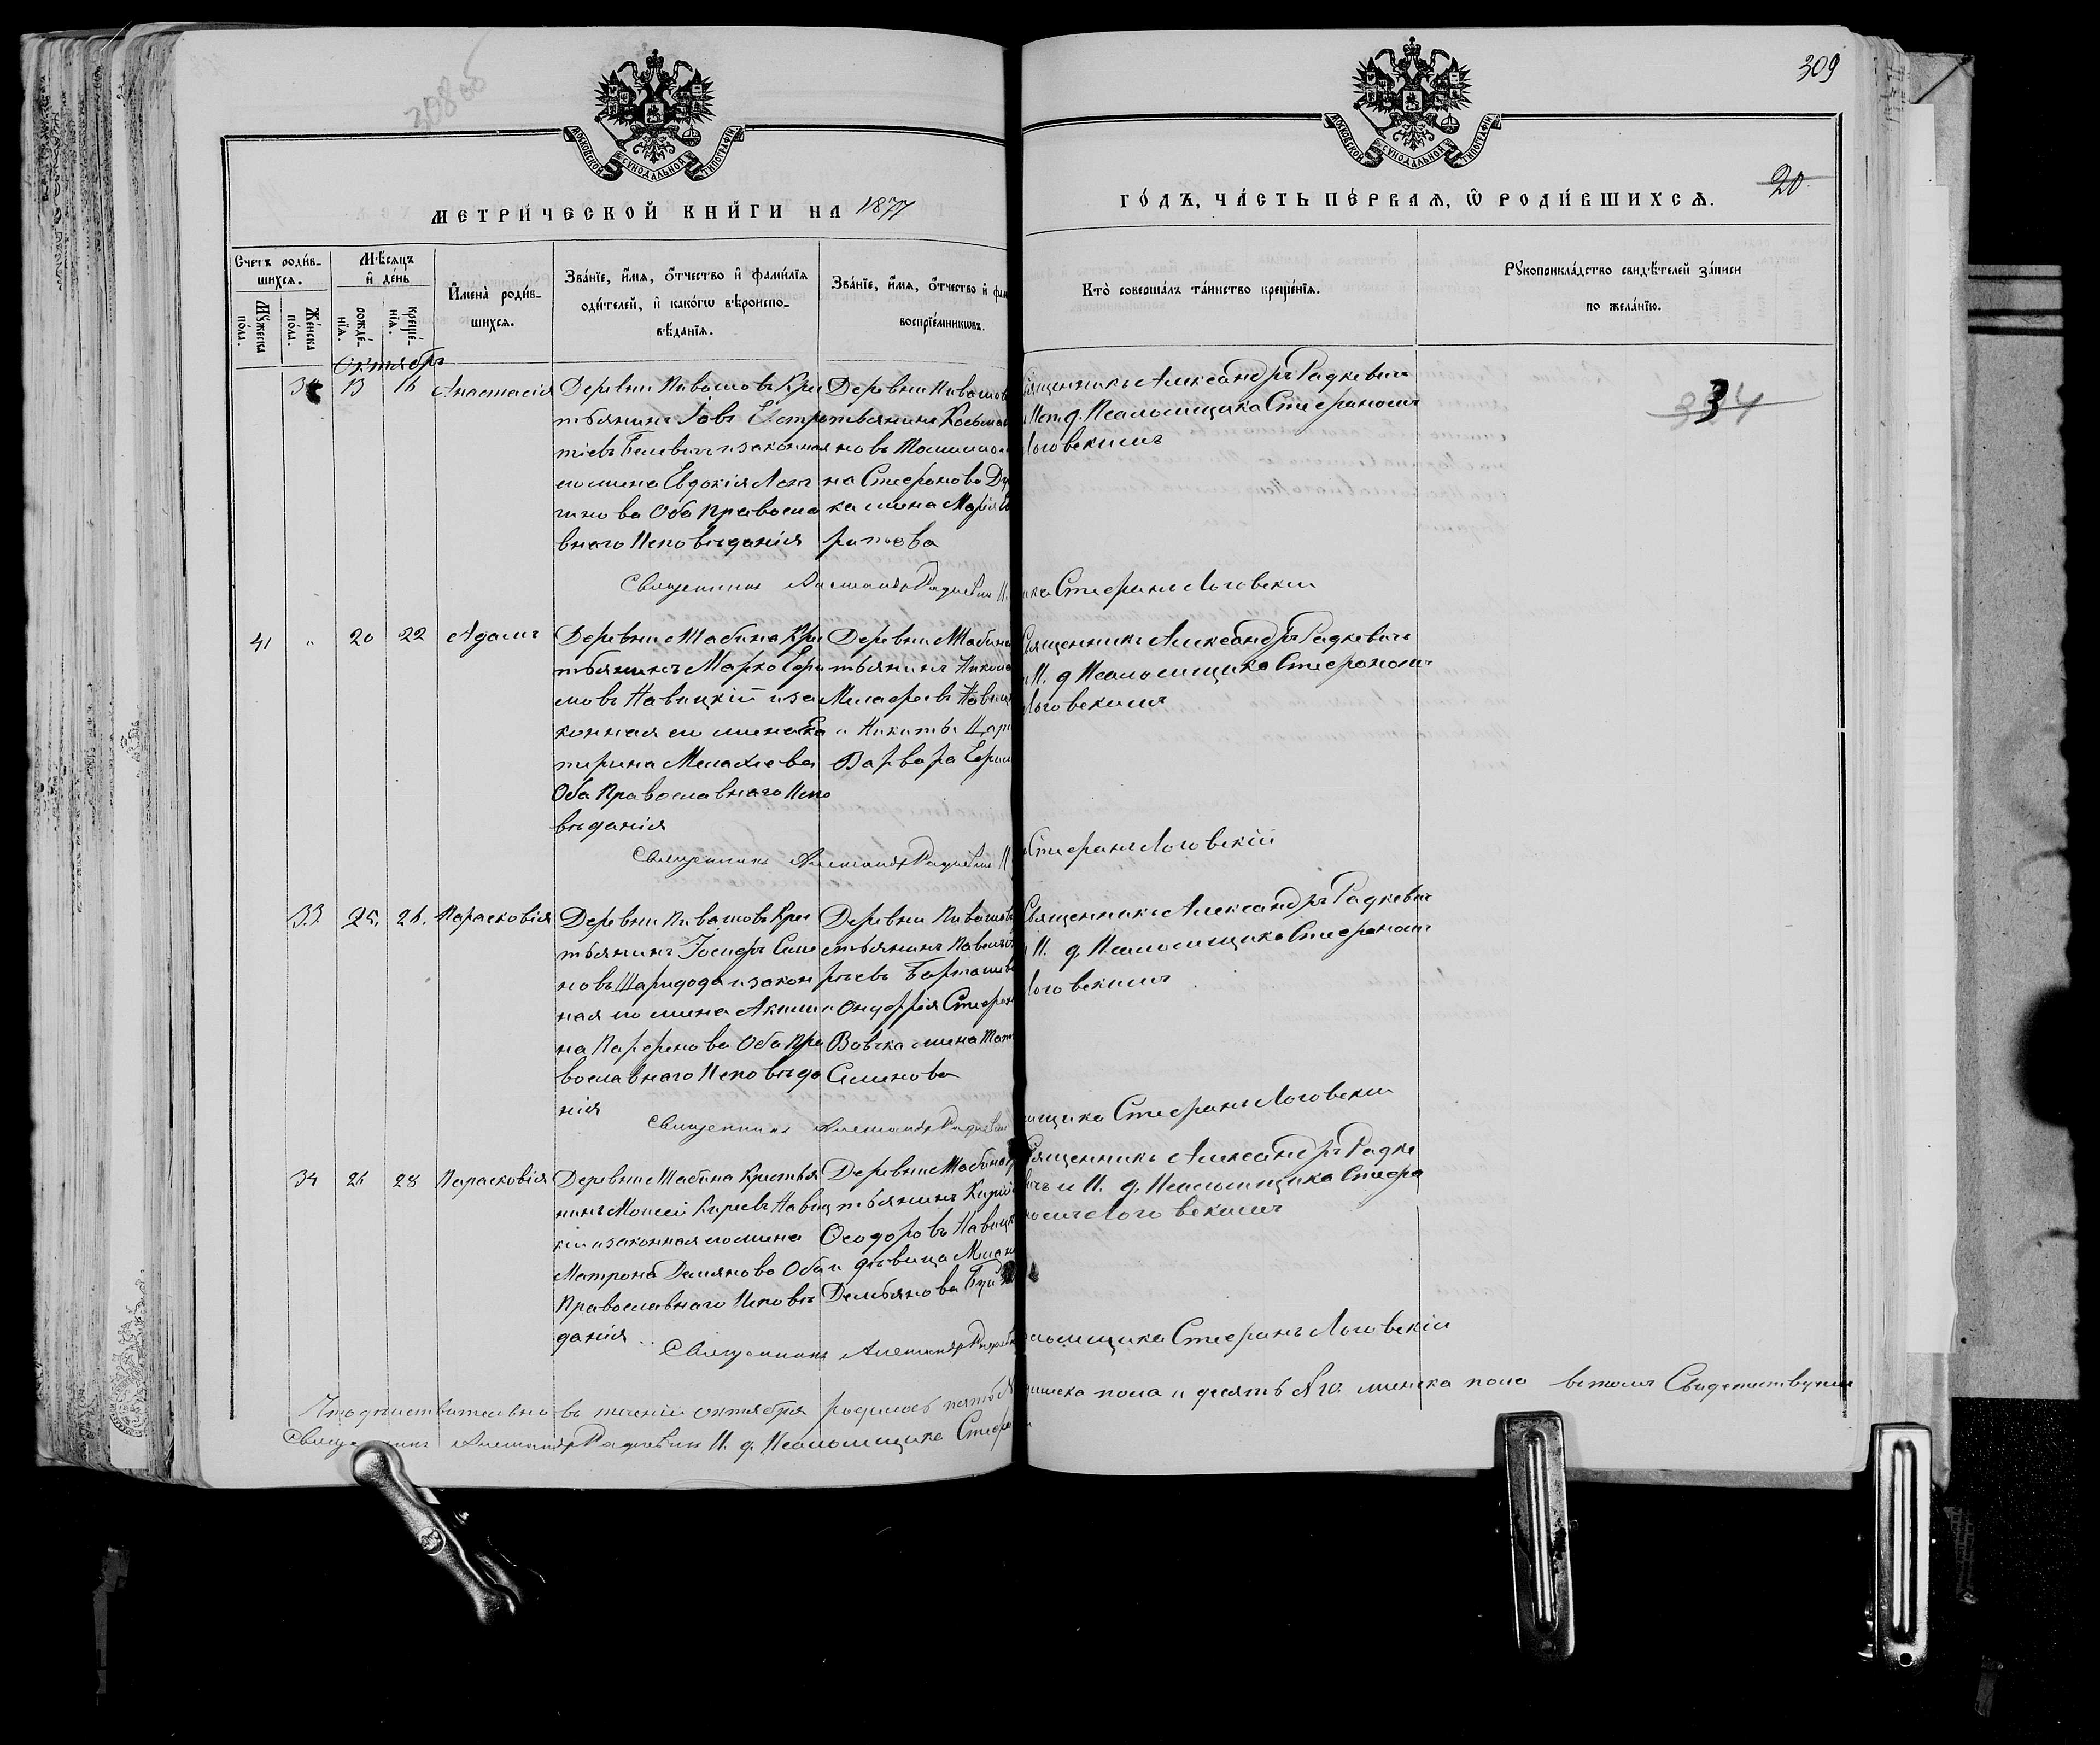 308 об
309
20
МОСКОВСКОЙ СУНОДАЛЬНОЙ ТИПОГРАФІИ
МОСКОВСКОЙ СУНОДАЛЬНОЙ ТИПОГРАФІИ
МЕТРИ́ЧЕСКОЙ КНИ́ГИ НА 1877
ГО́ДЪ, ЧА́СТЬ ПЕ́РВАѦ, Ѡ РОДИ́ВШИХСѦ.
Счетъ роди́вшихсѧ.
Мꙋ́жеска по́ла.
Же́нска по́ла.
Мѣ́сѧцъ и де́нь
рожде́нїѧ.
креще́нїѧ.
Имена̀ роди́вшихсѧ.
Зва́нїе, и́мѧ, о́тчество и фами́лїѧ
роди́телей, и како́гѡ вѣроиспо-
вѣ́данїѧ.
Зва́нїе, и́мѧ, о́тчество и фам
воспрїе́мникѡвъ.
Кто̀ соверша́лъ та́инство креще́нїѧ.
Рꙋкоприкла́дство свидѣ́телей за́писи
по жела́нїю.
Октябрь
13 16 Анастасія
Деревни Пивашовъ Кре
стьянинъ Іовъ Евстра
тіевъ Белевичъ и законная
его жена Евдокія Лон
гинова Оба Правосла
внаго Исповѣданія
Деревни Пивашов
стьянинъ Косьма
на Стефанова
ка жена Марія
Священникъ Александръ Радкевичъ
и Исп д. Псаломщика Стефаномъ
Логовскимъ
Священникъ Александръ Радкевичъ И.
ика Стефанъ Логовскій
41 " 20 22 Адамъ
Деревни Шабина Кре
стьянинъ Марко Ефи
мовъ Навицкій и за
конная его жена Ека
терина Малахіева
Оба Православнаго Испо
вѣданія
Деревни Шабина
стьянинъ Никола
Навиц
и Никиты
Варвара Ефим
Священникъ Александръ Радкевичъ
и И. д Псаломщика Стефаномъ
Логовскимъ
Священникъ Александръ Радкевичъ И
Стефанъ Логовскій
33 25. 26. Парасковія
Деревни Пивашовъ Кре
стьянинъ Іосифъ Семе
новъ Шаридода и закон
ная его жена Акили
на Парфенова Оба Пра
вославнаго Исповѣда
нія
Деревни Пивашов
стьянинъ Павелъ
и Стефан
Вовчка жена Тат
Семенова
Священникъ Александръ Радкевичъ
и И. д. Псаломщика Стефаномъ
Логовскимъ
Священникъ Александръ Радкевичъ
омщика Стефанъ Логовскій
34 26 28 Парасковія
Деревни Шабина Крестья
нинъ Моисей Киреевъ Навиц
кій и законная его жена
Матрона Демянова Оба
Православнаго Исповѣ
данія
Деревни Шабина
стьянинъ
Ѳеодоровъ Навицк
и дѣвица
Демьянова
Священникъ Александръ Радке
вичъ и И. д. Псаломщика Стефа
номъ Логовскимъ
Священникъ Александръ Радкевичъ
аломщика Стефанъ Логовскій
Что дѣйствительно въ теченіи октября родилось пять
жеска пола и десять №10. женска пола въ томъ Свидетельствуемъ
Священникъ Александръ Радкевичъ И. д. Псаломщика Стефан